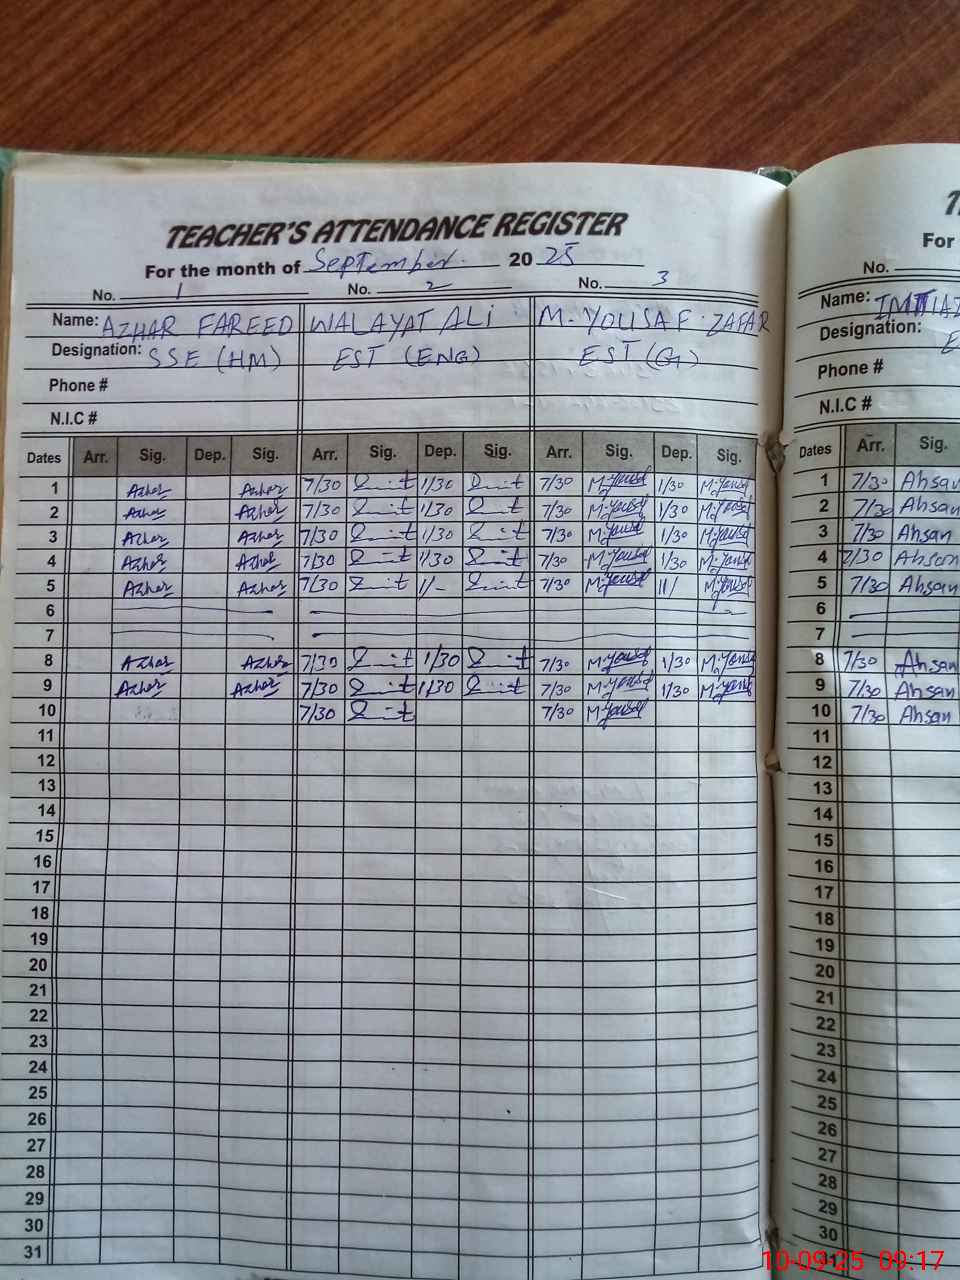 TEACHER'S ATTENDANCE REGISTER
For the month of September 2025
No. 1 No. 2 No. 3
Name: AZHAR FAREED WALAYAT ALI M. YOUSAF ZAFAR
Designation: SSE (HM) EST (ENG) EST (G)
Phone #
N.I.C #
Dates Arr. Sig. Dep. Sig. Arr. Sig. Dep. Sig. Arr. Sig. Dep. Sig.
1 Azhar Azhar 7/30 1/30 7/30 M.Yousaf 1/30 M.Yousaf
2 Azhar Azhar 7/30 1/30 7/30 M.Yousaf 1/30 M.Yousaf
3 Azhar Azhar 7/30 1/30 7/30 M.Yousaf 1/30 M.Yousaf
4 Azhar Azhar 7/30 1/30 7/30 M.Yousaf 1/30 M.Yousaf
5 Azhar Azhar 7/30 11/- 7/30 M.Yousaf 11/ M.Yousaf
6
7
8 Azhar Azhar 7/30 1/30 7/30 M.Yousaf 1/30 M.Yousaf
9 Azhar Azhar 7/30 1/30 7/30 M.Yousaf 1/30 M.Yousaf
10 7/30 7/30 M.Yousaf
11
12
13
14
15
16
17
18
19
20
21
22
23
24
25
26
27
28
29
30
31
For
No.
Name: IMTIAZ
Designation:
Phone #
N.I.C #
Dates Arr. Sig.
1 7/30 Ahsan
2 7/30 Ahsan
3 7/30 Ahsan
4 7/30 Ahsan
5 7/30 Ahsan
6
7
8 7/30 Ahsan
9 7/30 Ahsan
10 7/30 Ahsan
11
12
13
14
15
16
17
18
19
20
21
22
23
24
25
26
27
28
29
30
31
10-09-25 09:17